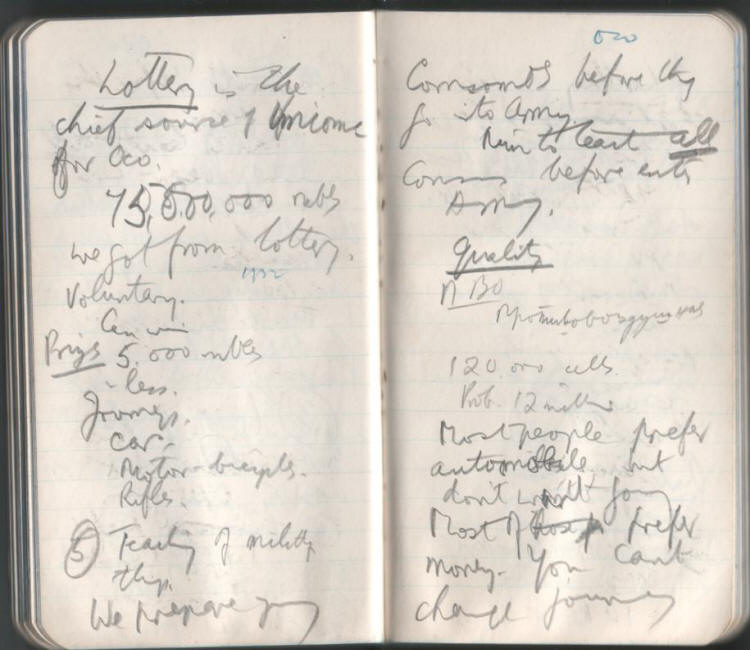 Lottery is the
chief source of income
for Oso.
75,000,000 rubls
we got from lottery.
1932
Voluntary.
Can win
Prizes 5.000 rubles
- less.
Journeys.
car -
Motor-bicycles.
Rifles.
5 Teaching of military
things.
We prepare young
OSO
Comsomols before they
go into Army.
Aim to teach all
Coms before enter
Army.
Quality
П ВО
120.000 cells.
Prob. 12 million
Most people prefer
automobile but
don't want journey
Most of prefer
money. You can't
change journey